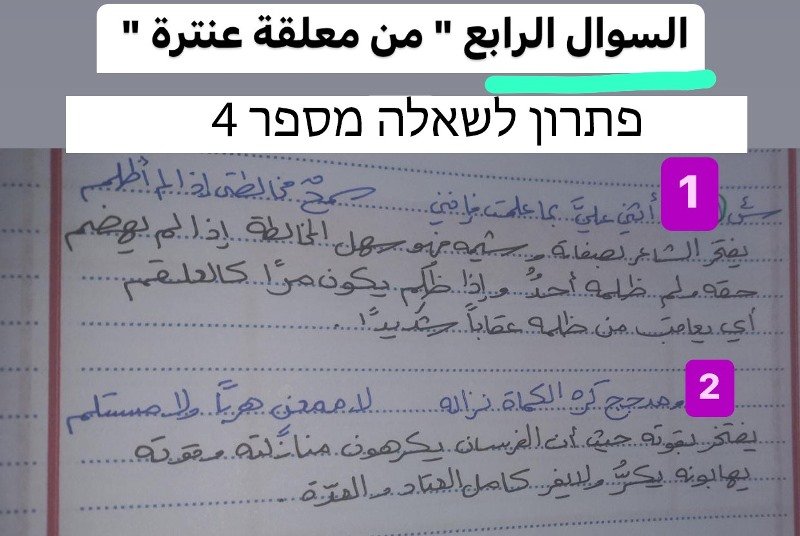 السوال الرابع " من معلقة عنترة "
פתרון לשאלה מספר 4
1
أثني عليَّ بما علمت فإنني سمحٌ مخالطتي إذا لم أظلم
يفتخر الشاعر بصفاته وشيمه فهو سهل المخالطة إذا لم يهضم
حقه ولم ظلمه أحدٌ وإذا ظُلم يكون مرًا كالعلقم
أي يعاقب من ظلمه عقاباً شديدًا.
2
ومدجج كره الكماة نزاله لا ممعنٍ هربًا ولا مستلم
يفتخر بقوته حيث أن الفرسان يكرهون منازلته وقوته
يهابونه يكرُّ ولا يفر كامل العتاد والعدّة.